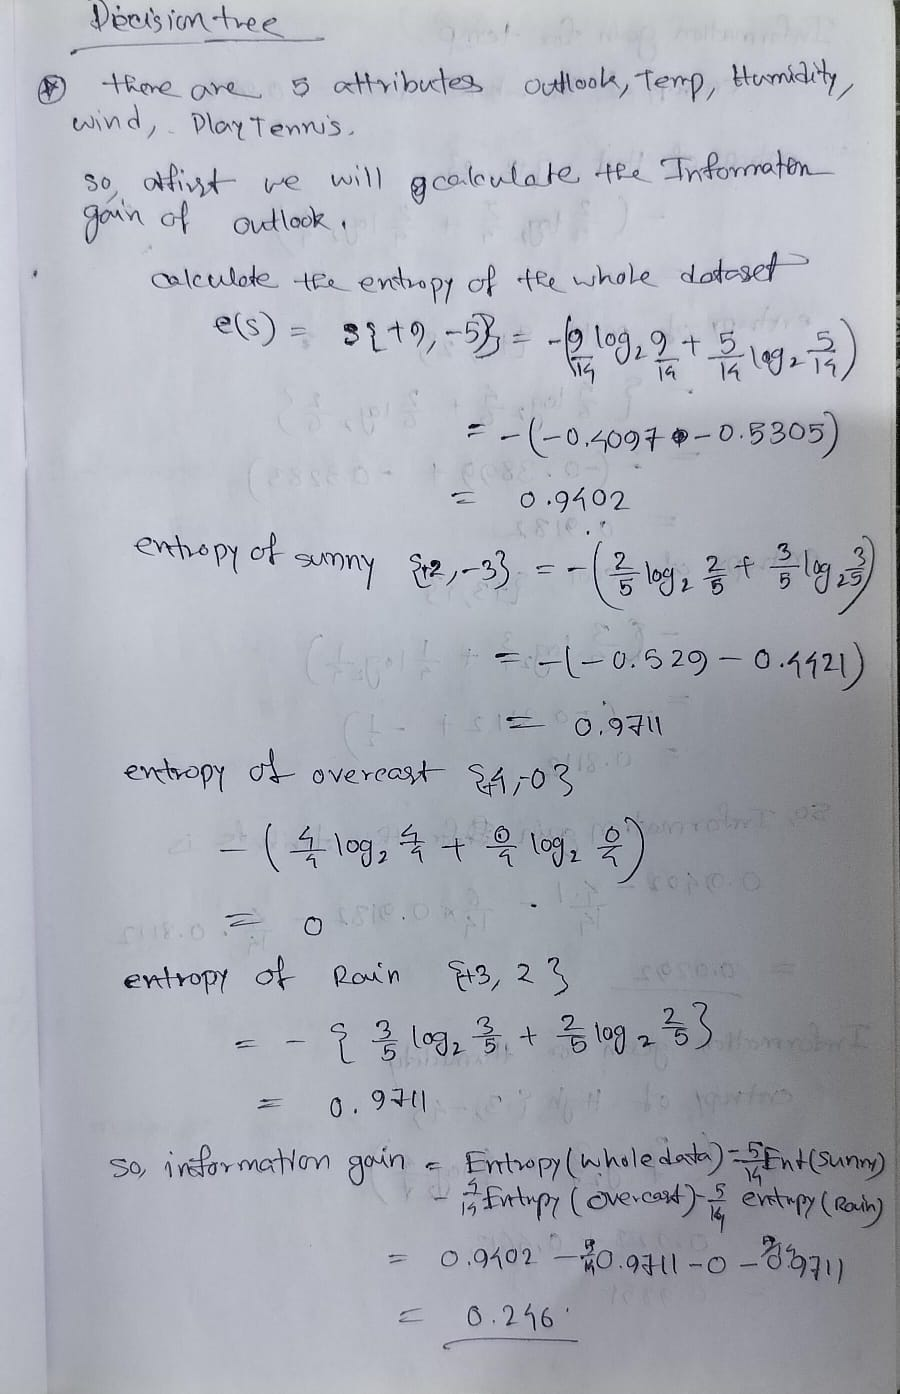 Decision tree
⊛ there are 5 attributes outlook, Temp, Humidity,
wind, Play Tennis.
so, atfirst we will calculate the Informaton
gain of outlook.
calculate the entropy of the whole dataset
e(s) = S{+9, -5} = -(9/14 log₂ 9/14 + 5/14 log₂ 5/14)
= -(-0.4097 - 0.5305)
= 0.9402
entropy of sunny {+2, -3} = -(2/5 log₂ 2/5 + 3/5 log₂ 3/5)
= -(-0.529 - 0.4421)
= 0.9711
entropy of overcast {4, -0}
- (4/4 log₂ 4/4 + 0/4 log₂ 0/4)
= 0
entropy of Rain {+3, 2}
= - {3/5 log₂ 3/5 + 2/5 log₂ 2/5}
= 0.9711
so, information gain = Entropy (whole data) - 5/14 Ent(sunny)
- 4/14 Entropy (overcast) - 5/14 entropy (Rain)
= 0.9402 - 0.9711 - 0 - 0.9711
= 0.246